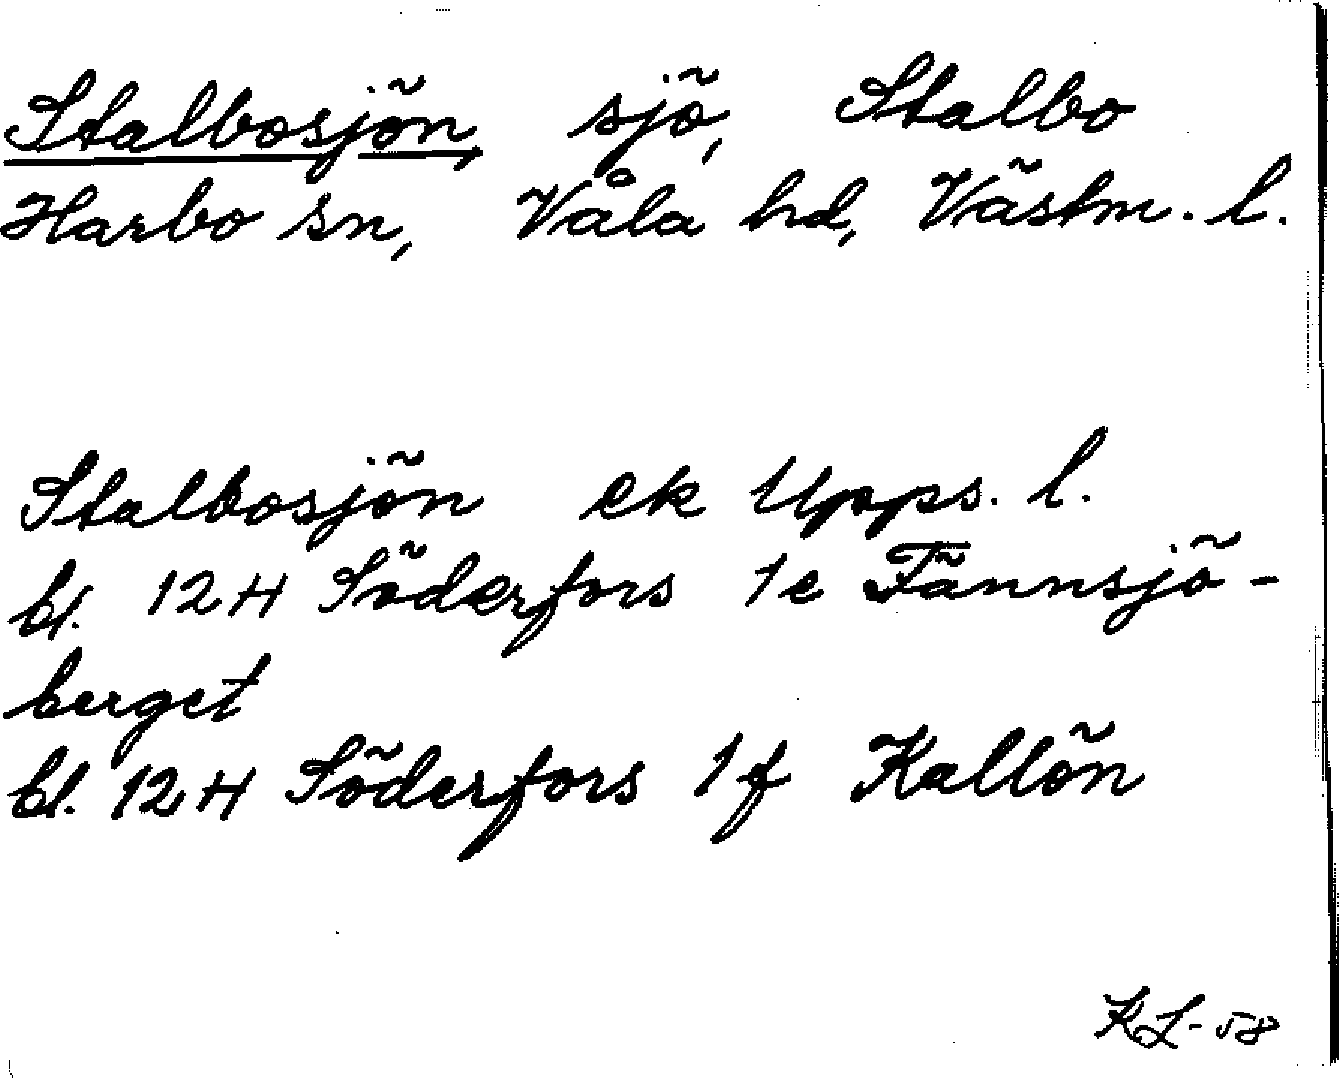 Stalbosjön, sjö, Stalbo
Harbo sn, Våla hd, Västm. l.
Stalbosjön ek Upps. l.
bl. 12H Söderfors 1e Tännsjö-
berget
bl. 12H Söderfors 1f Kallön
KL-58